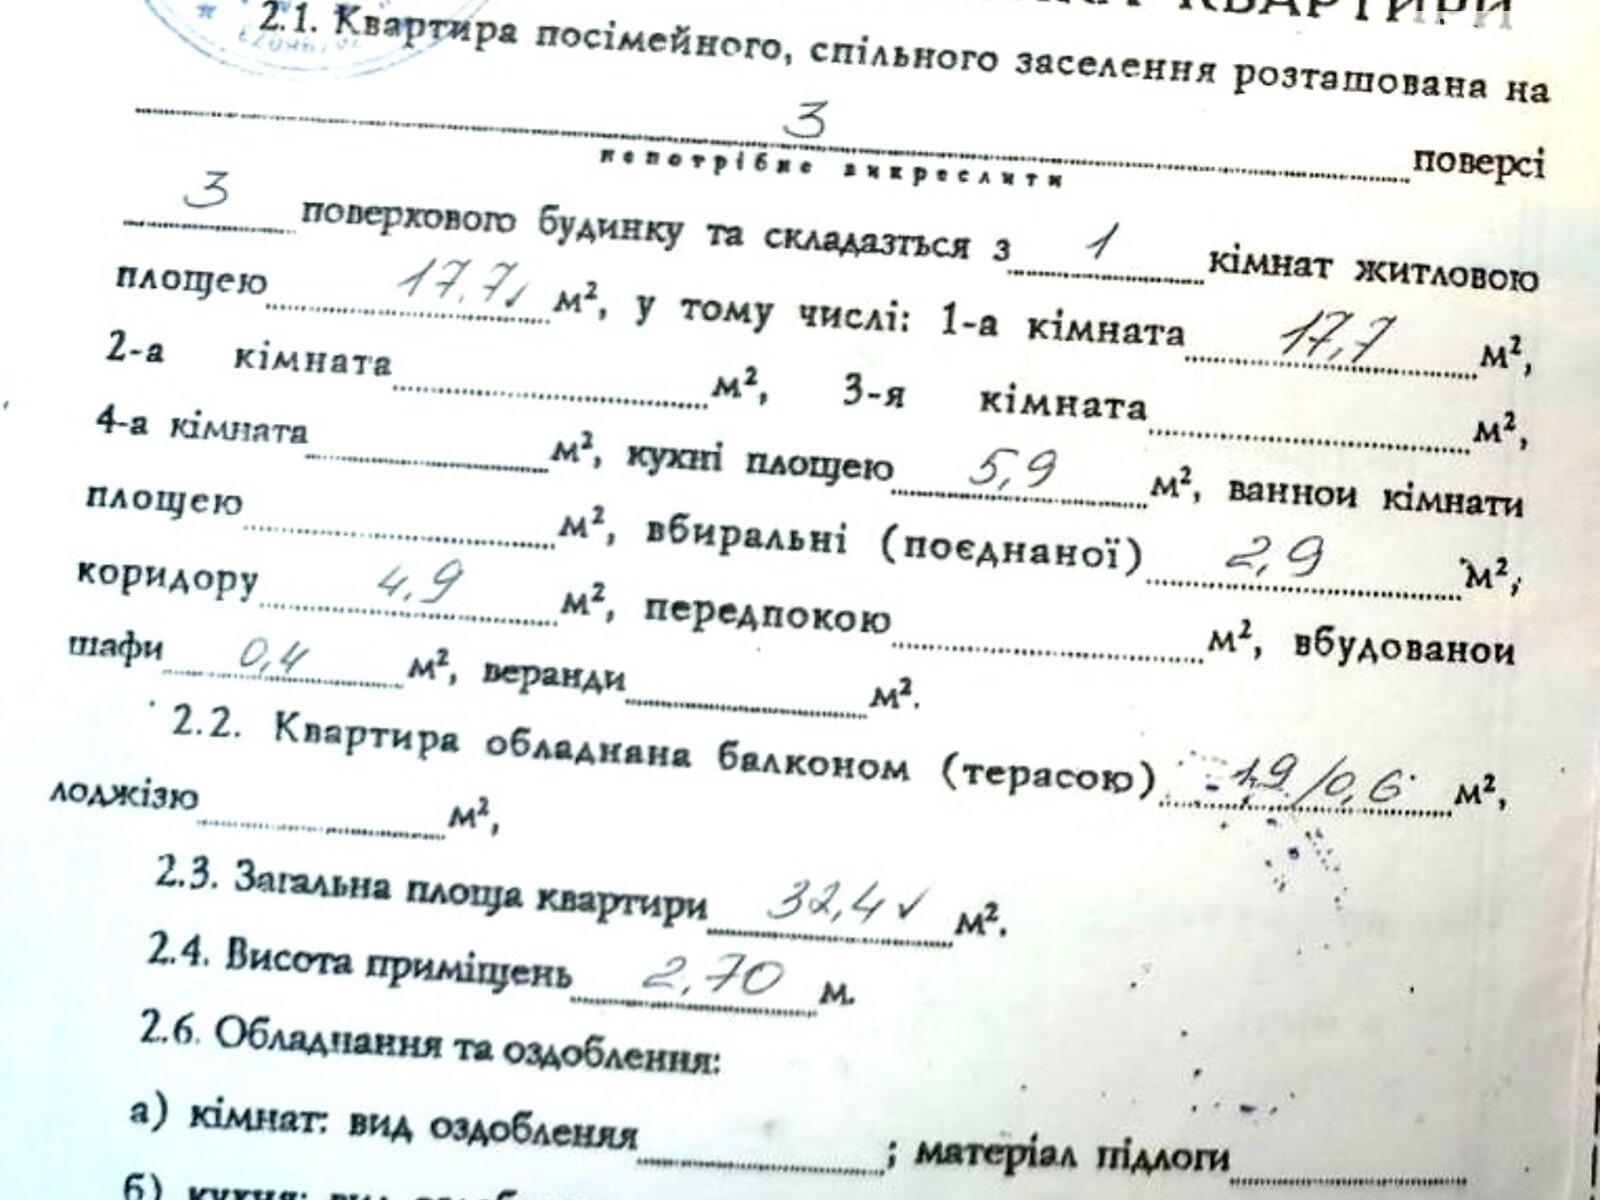 КВАРТИРИ
2.1. Квартира посімейного, спільного заселення розташована на
3 поверсі
непотрібне викреслити
3 поверхового будинку та складазться з 1 кімнат житловою
площею 17.7 м², у тому числі: 1-а кімната 17,7 м²,
2-а кімната м², 3-я кімната м²,
4-а кімната м², кухні площею 5,9 м², ванной кімнати
площею м², вбиральні (поєднаної) 2,9 м²,
коридору 4,9 м², передпокою м², вбудованой
шафи 0,4 м², веранди м².
2.2. Квартира обладнана балконом (терасою) 1,9/0,6 м²,
лоджізю м²,
2.3. Загальна площа квартири 32,4 ✓ м².
2.4. Висота приміщень 2,70 м.
2.6. Обладнання та оздоблення:
а) кімнат: вид оздоблення ; матеріал підлоги
б) кухня: вид